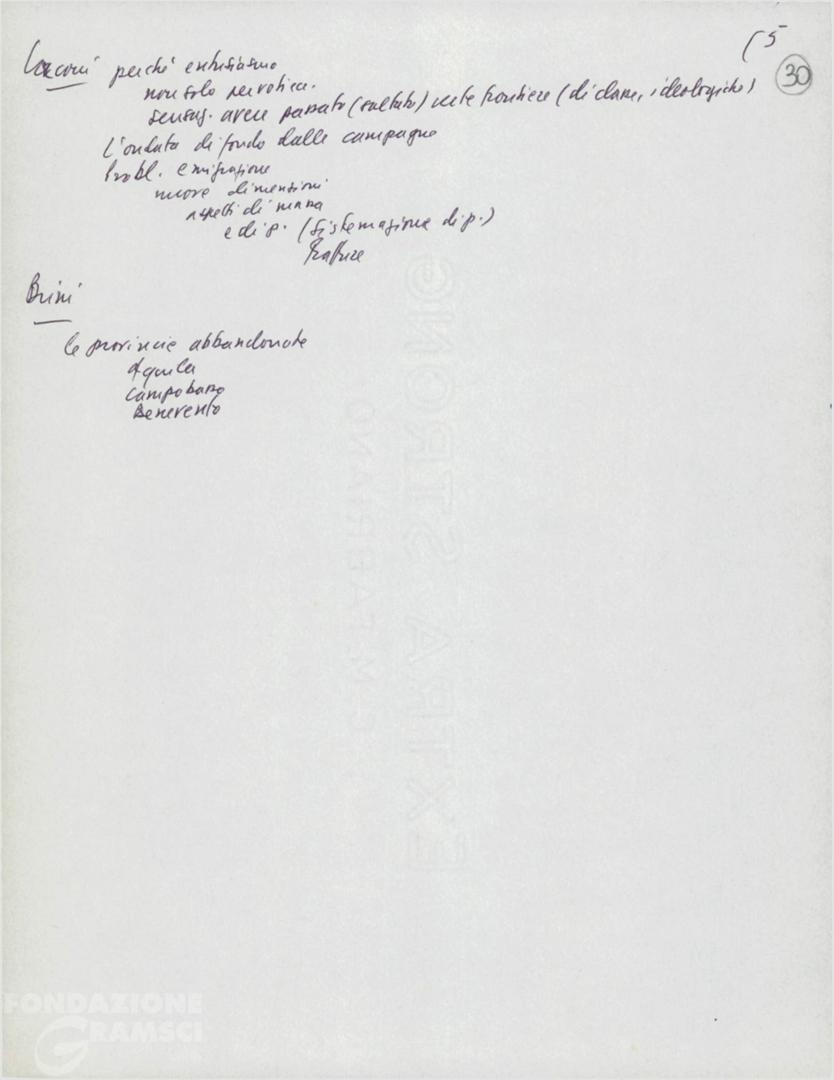 (5
30
Laconi perché entusiasmo
non solo nervotica.
sensaz. avere passato (saltato) certe frontiere (di classe, ideologiche)
L'ondata di fondo dalle campagne
Probl. emigrazione
nuove dimensioni
aspetti di massa
e di p. (sistemazione di p.)
fratture
Brini
le provincie abbandonate
Aquila
Campobasso
Benevento
EXTRA STRONG
G.M. FABRIANO
FONDAZIONE
GRAMSCI